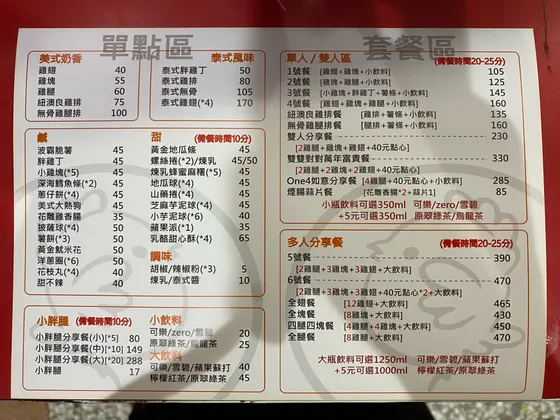 單點區
美式奶香
雞翅 40
雞塊 55
雞腿 60
紐澳良雞排 75
無骨雞腿排 100
泰式風味
泰式胖雞丁 50
泰式雞排 80
泰式無骨 105
泰式雞翅(*4) 170
鹹
波霸脆薯 45
胖雞丁 45
小雞塊(*5) 45
深海鱈魚條(*2) 45
蔥仔餅(*4) 45
美式大熱狗 45
花雕香腸 35
披薩球(*4) 50
薯餅(*3) 50
黃金魷米花 50
洋蔥圈(*6) 50
花枝丸(*4) 40
甜不辣 40
甜 (備餐時間10分)
黃金地瓜條 45
螺絲捲(*2)/煉乳 45/50
煉乳蜂蜜麻糬(*5) 45
地瓜球(*4) 45
山藥捲(*4) 45
芝麻芋泥球(*4) 45
小芋泥球(*6) 40
蘋果派(*1) 35
乳酪甜心酥(*4) 65
調味
胡椒/辣椒粉(*3) 5
煉乳/泰式醬 10
小胖腿 (備餐時間10分)
小胖腿分享餐(小)[*5] 80
小胖腿分享餐(中)[*10] 149
小胖腿分享餐(大)[*20] 288
小胖腿 17
小飲料
可樂/zero/雪碧 20
原翠綠茶/烏龍茶 25
大飲料
可樂/雪碧/蘋果蘇打 40
檸檬紅茶/原翠綠茶 45
套餐區
單人/雙人區 (備餐時間20-25分)
1號餐 [雞翅+雞塊+小飲料] 105
2號餐 [雞腿+雞塊+小飲料] 125
3號餐 [小雞塊+胖雞丁+薯條+小飲料] 145
4號餐 [雞翅+雞塊+雞腿+小飲料] 160
紐澳良雞排餐 [雞排+薯條+小飲料] 135
無骨雞腿排餐 [腿排+薯條+小飲料] 160
雙人分享餐 230
[2雞腿+2雞塊+雞翅+40元點心]
雙雙對對萬年富貴餐 330
[2雞腿+2雞翅+2雞塊+40元點心+2小飲料]
One4如意分享餐 [4雞腿+40元點心+小飲料] 285
煙腸蒜片餐 [花雕香腸*2+蒜片1] 85
小瓶飲料可選350ml 可樂/zero/雪碧
+5元可選350ml 原翠綠茶/烏龍茶
多人分享餐 (備餐時間20-25分)
5號餐 390
[2雞腿+3雞塊+3雞翅+大飲料]
6號餐 470
[2雞腿+3雞塊+3雞翅+40元點心*2+大飲料]
全翅餐 [12雞翅+大飲料] 465
全塊餐 [8雞塊+大飲料] 430
四腿四塊餐 [4雞腿+4雞塊+大飲料] 450
全腿餐 [8雞腿+大飲料] 470
大瓶飲料可選1250ml 可樂/雪碧/蘋果蘇打
+5元可選1000ml 檸檬紅茶/原翠綠茶